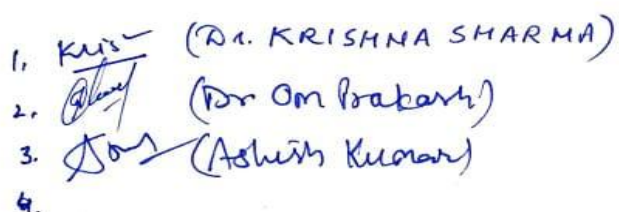 1. Kris (DR. KRISHNA SHARMA)
2. (Dr Om Prakash)
3. (Ashish Kumar)
4.